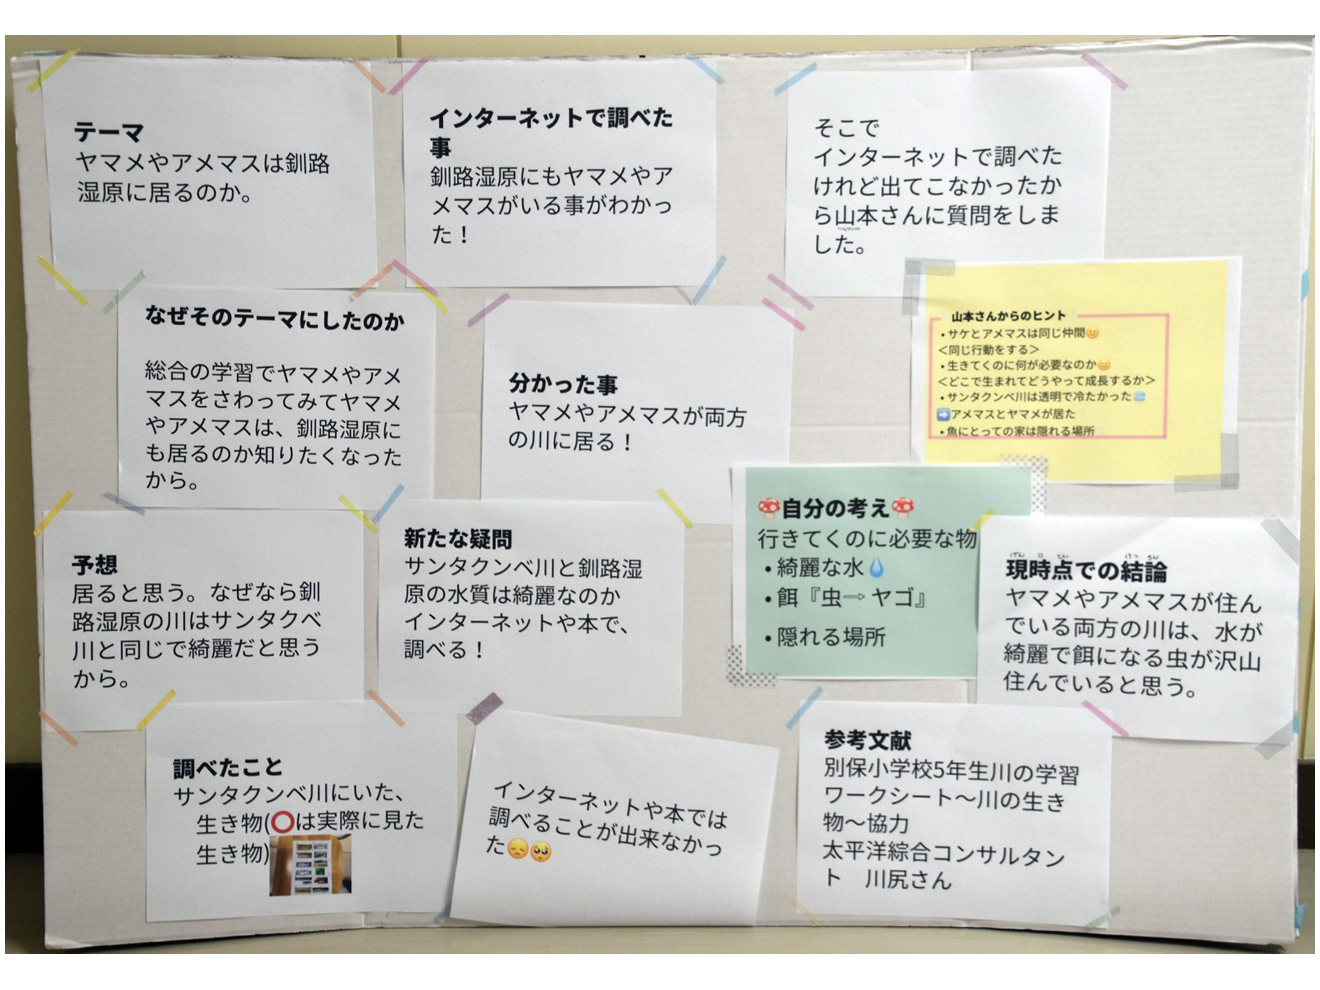 テーマ
ヤマメやアメマスは釧路
湿原に居るのか。
なぜそのテーマにしたのか
総合の学習でヤマメやアメ
マスをさわってみてヤマメ
やアメマスは、釧路湿原に
も居るのか知りたくなった
から。
予想
居ると思う。なぜなら釧
路湿原の川はサンタクベ
川と同じで綺麗だと思う
から。
調べたこと
サンタクンベ川にいた、
生き物(⭕は実際に見た
生き物)
インターネットで調べた
事
釧路湿原にもヤマメやア
メマスがいる事がわかっ
た！
分かった事
ヤマメやアメマスが両方
の川に居る！
新たな疑問
サンタクンベ川と釧路湿
原の水質は綺麗なのか
インターネットや本で、
調べる！
インターネットや本では
調べることが出来なかっ
た😞🥺
そこで
インターネットで調べた
けれど出てこなかったか
ら山本さんに質問をしま
した。
山本さんからのヒント
・サケとアメマスは同じ仲間
＜同じ行動をする＞
・生きてくのに何が必要なのか
＜どこで生まれてどうやって成長するか＞
・サンタクンベ川は透明で冷たかった
➡アメマスとヤマメが居た
・魚にとっての家は隠れる場所
🍄自分の考え🍄
行きてくのに必要な物
・綺麗な水💧
・餌『虫⇨ヤゴ』
・隠れる場所
現時点での結論
ヤマメやアメマスが住ん
でいる両方の川は、水が
綺麗で餌になる虫が沢山
住んでいると思う。
参考文献
別保小学校5年生川の学習
ワークシート〜川の生き
物〜協力
太平洋綜合コンサルタン
ト　川尻さん